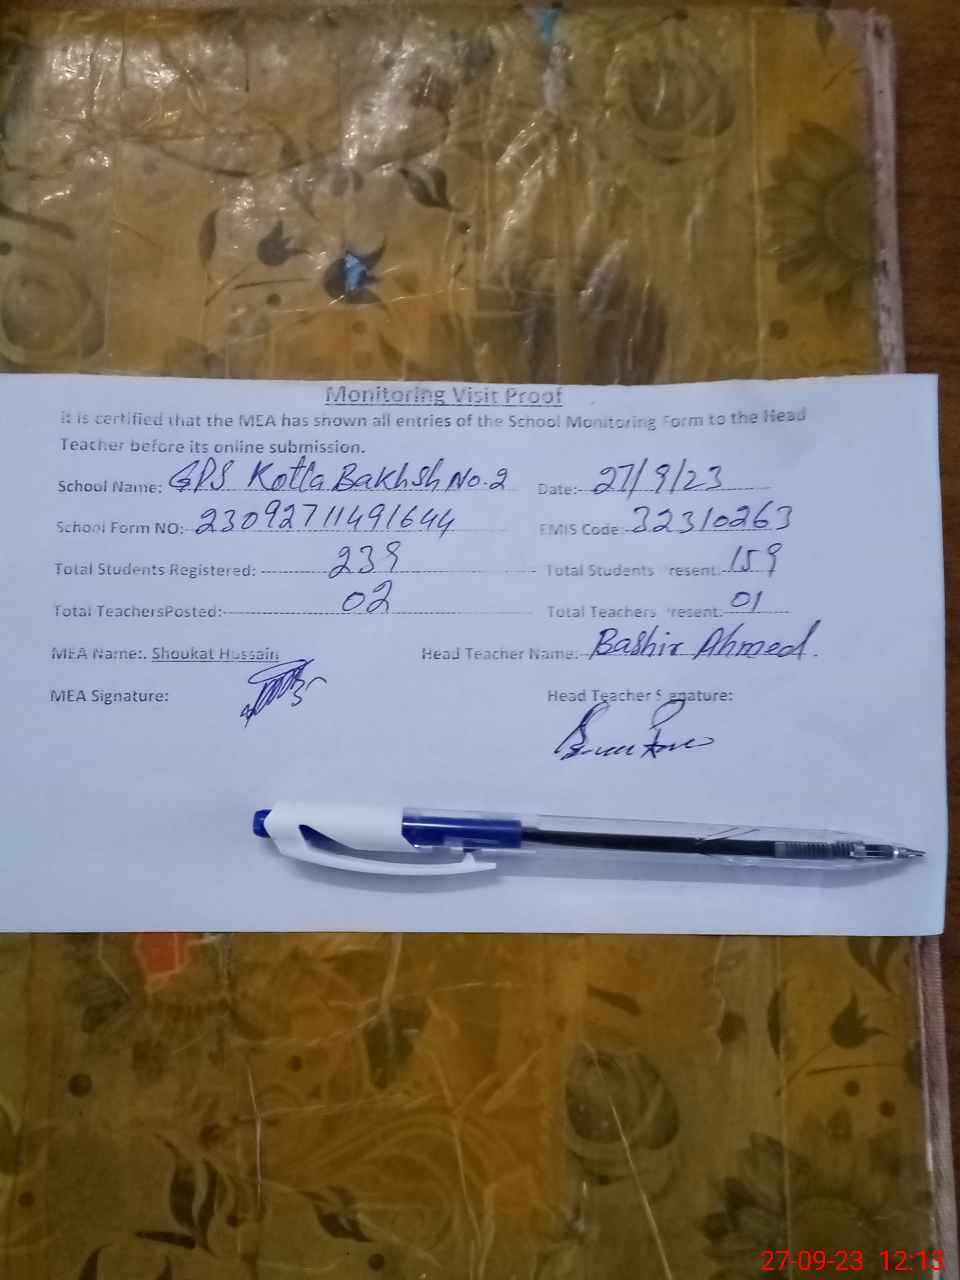 Monitoring Visit Proof
It is certified that the MEA has shown all entries of the School Monitoring Form to the Head
Teacher before its online submission.
School Name: GPS Kotla Bakhsh No.2 Date: 27/9/23
School Form NO: 23092711491644 EMIS Code: 32310263
Total Students Registered: 239 Total Students resent: 159
Total TeachersPosted: 02 Total Teachers resent: 01
MEA Name:. Shoukat Hussain Head Teacher Name: Bashir Ahmed.
MEA Signature: Head Teacher S gnature:
27-09-23 12:13